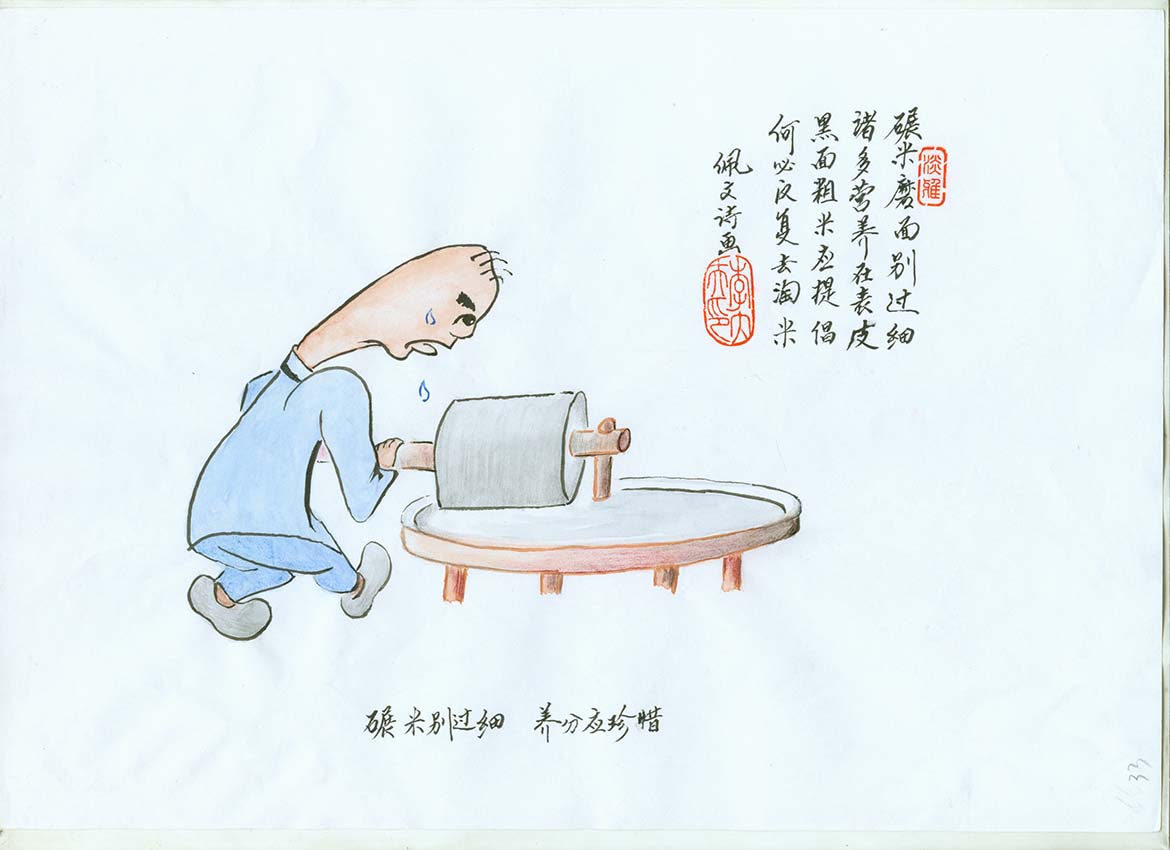 碾米磨面别过细
诸多营养在表皮
黑面粗米应提倡
何必反复去淘米
佩文诗画
淡雅
碾米别过细 养分应珍腊
33